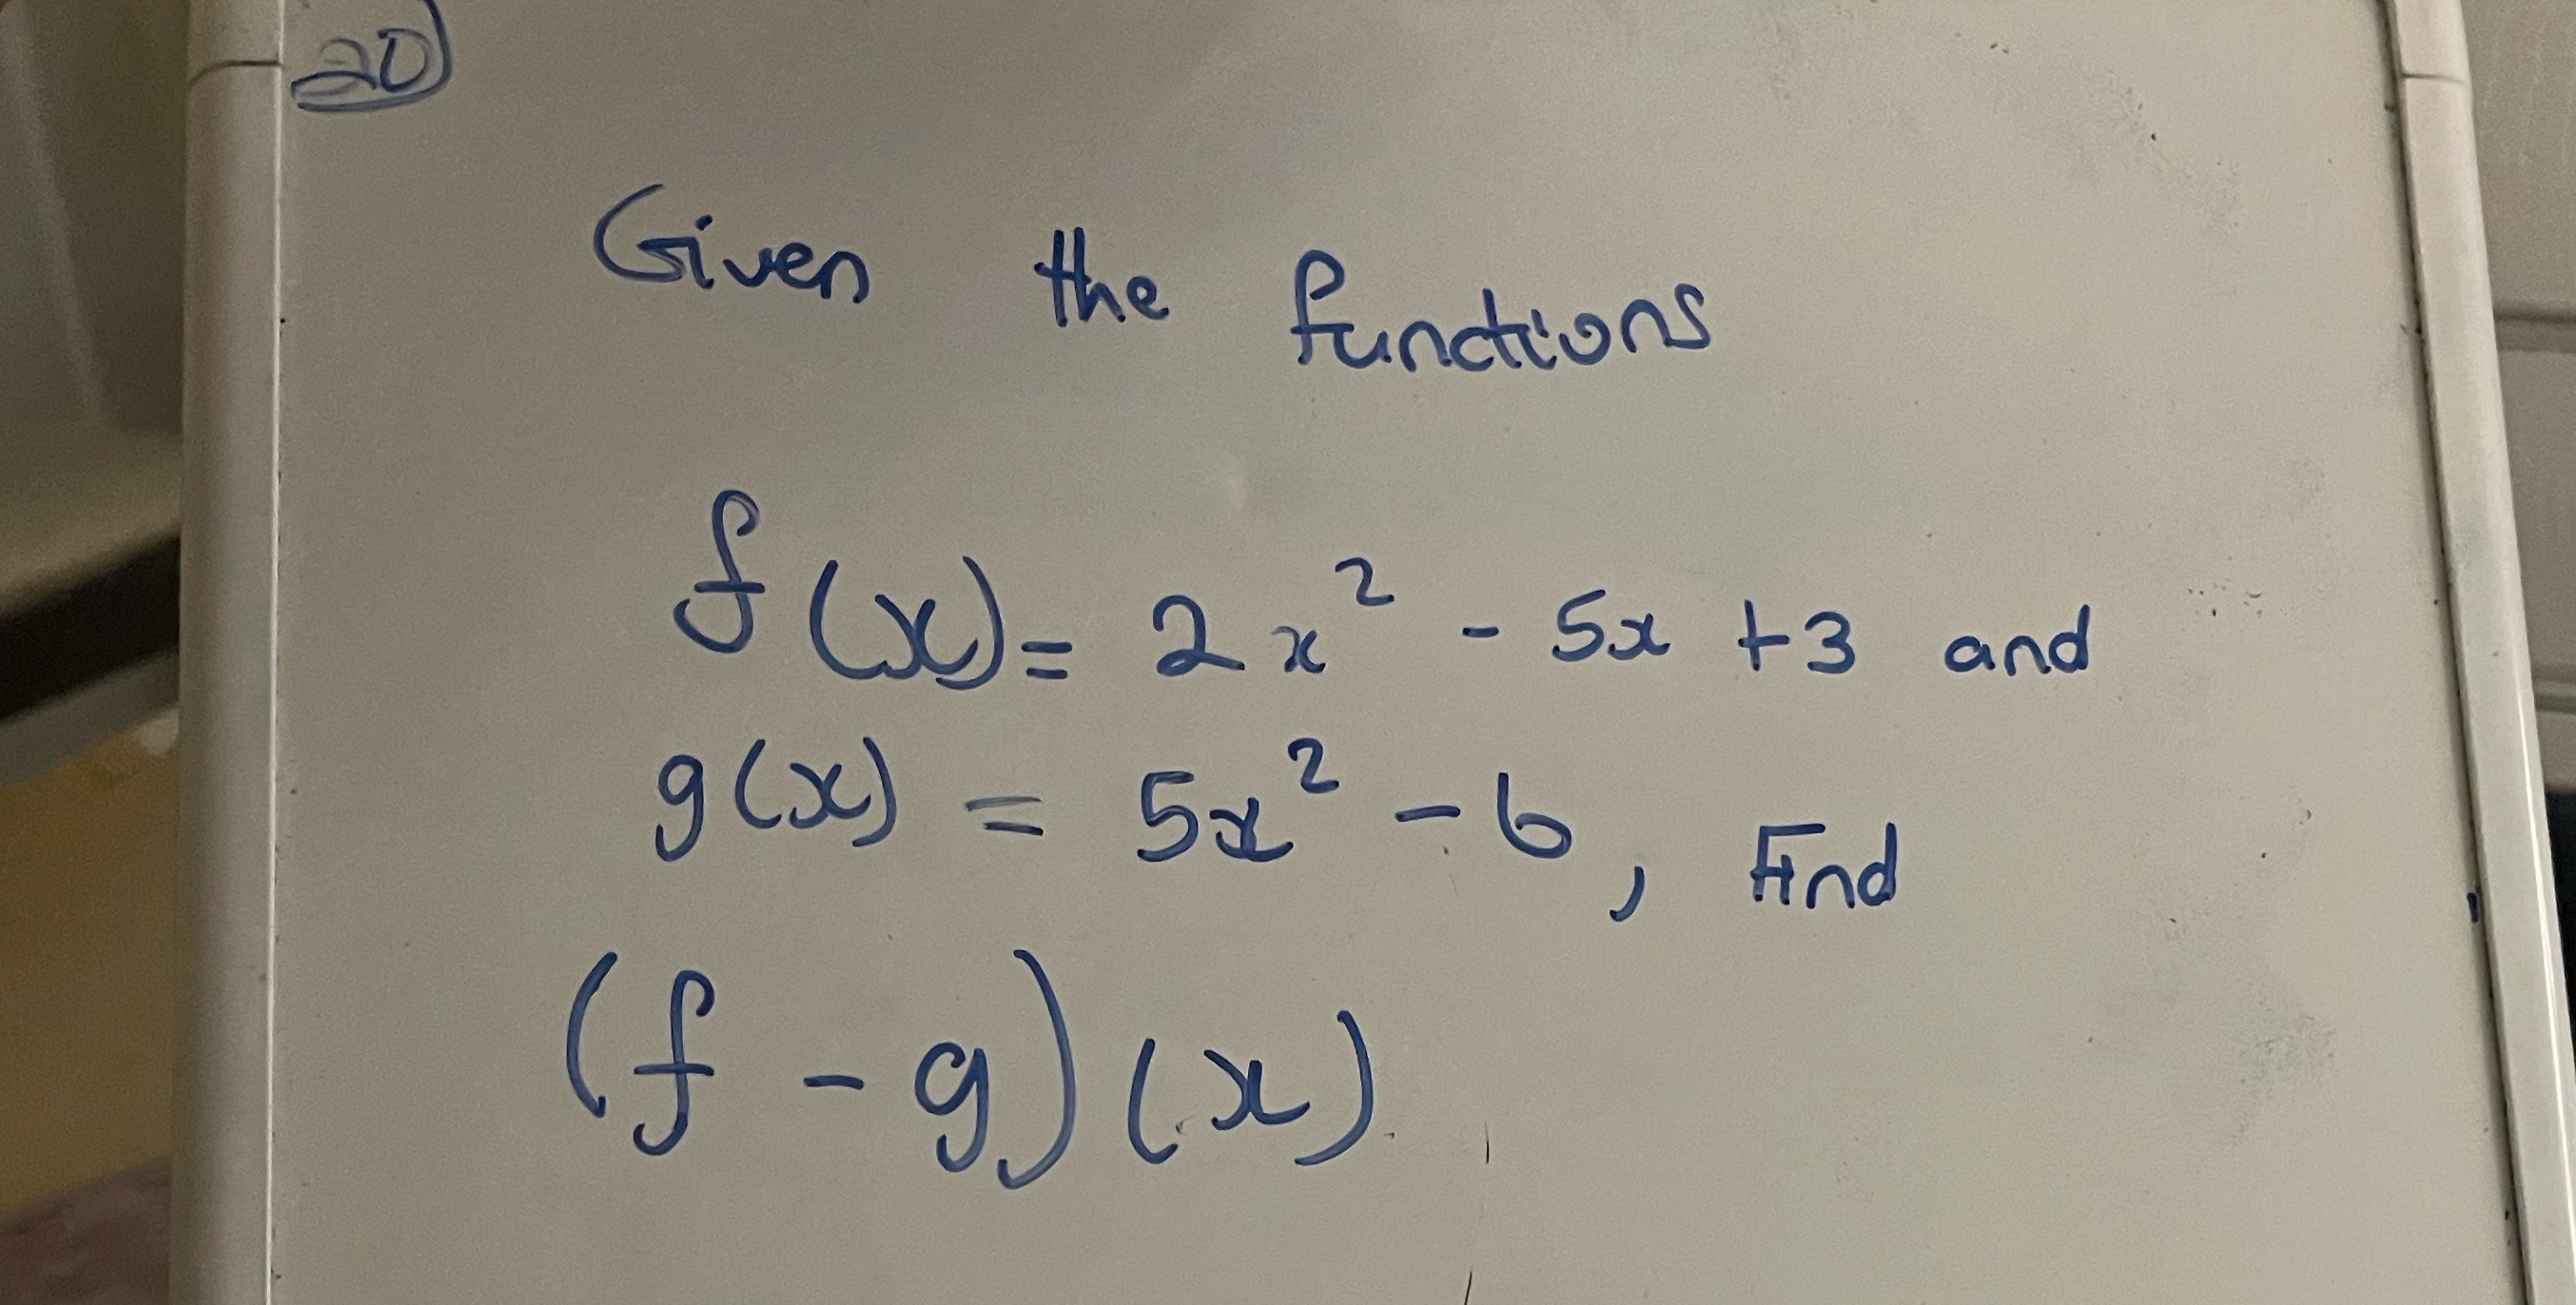 20)
Given the functions
f(x) = 2x² - 5x + 3 and
g(x) = 5x² - 6, Find
(f - g)(x)